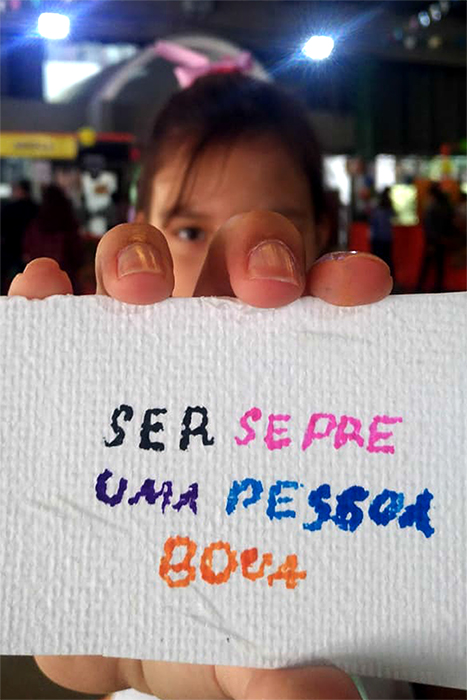 SER SEPRE
UMA PESSOA
BOUA